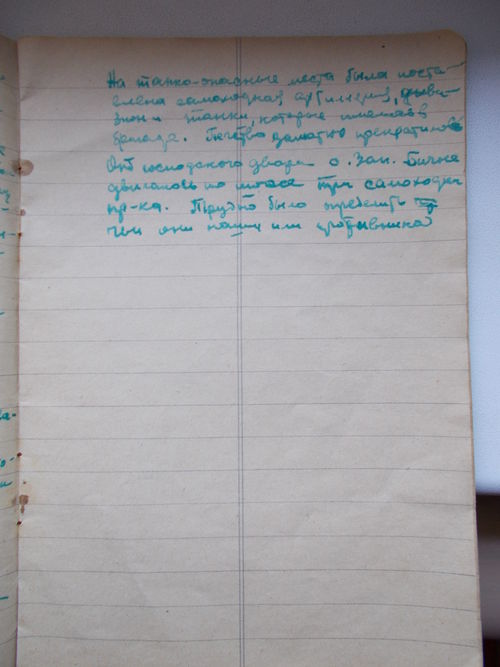 На танко-опасные места была поста-
влена самоходная артиллерия, диви-
зион и танки, которые имелись в
бригаде. Бегство заметно прекратилось
От господского двора о. Зап.
двигалось по шоссе три самоходки
пр-ка. Трудно было определить
чьи они наши или противника